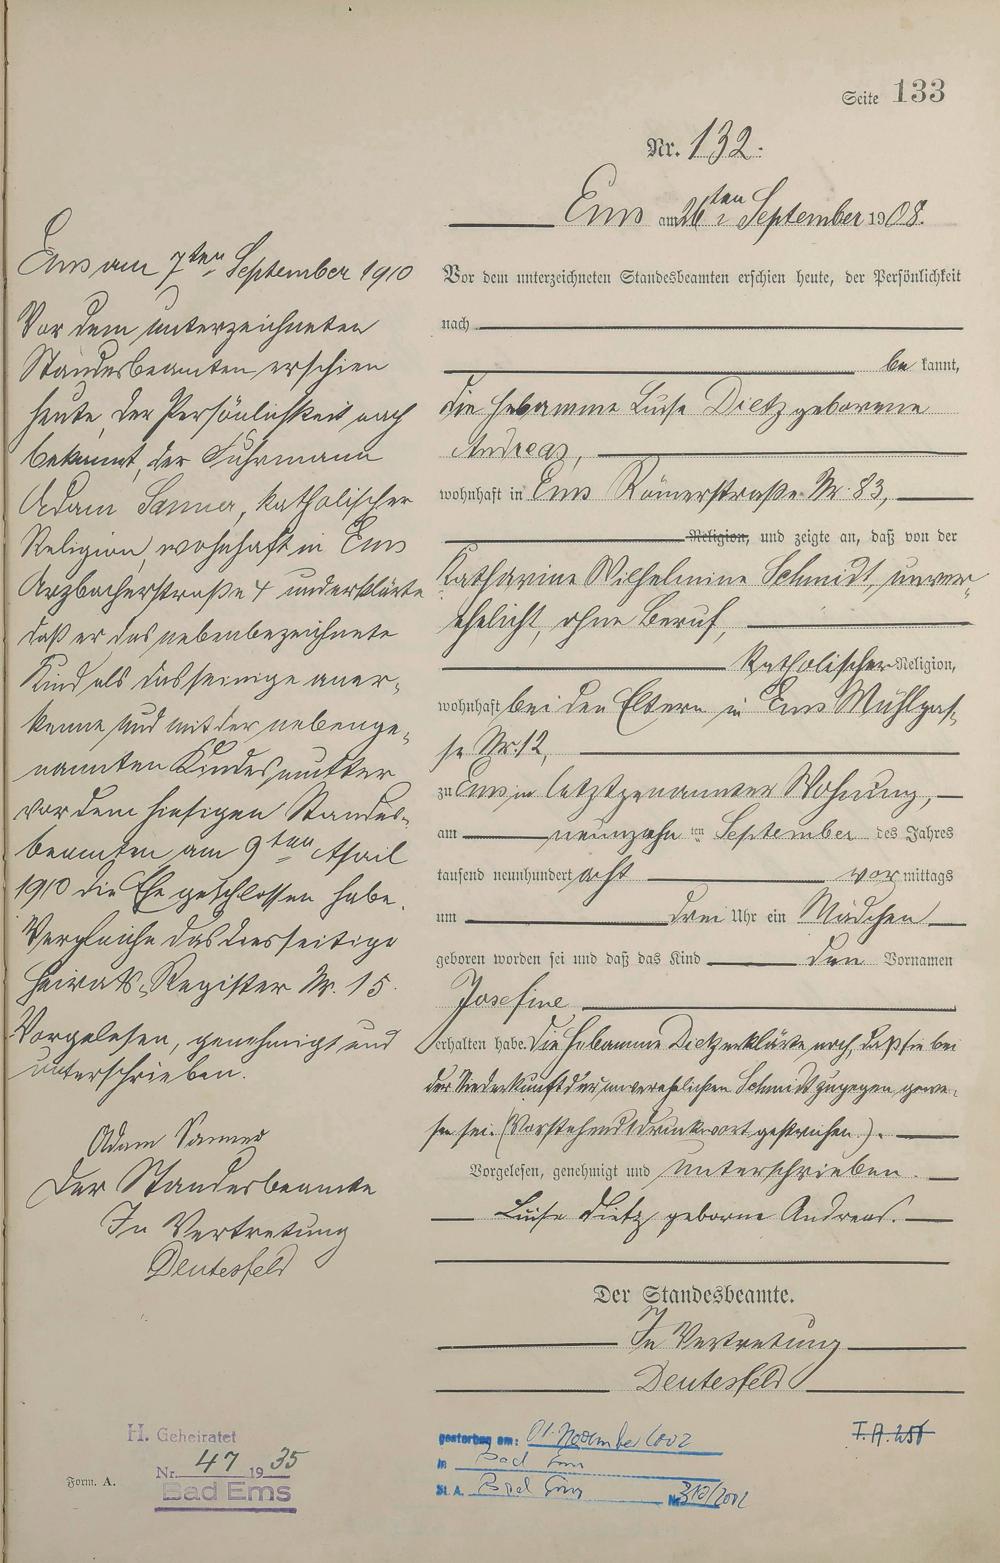 Seite 133
Nr. 132.
Ems am 26ten September 1908.
Vor dem unterzeichneten Standesbeamten erschien heute, der Persönlichkeit
nach
be kannt,
die Hebamme Luise Dietz geborene
Andreas,
wohnhaft in Ems Römerstraße Nr. 83,
Religion, und zeigte an, daß von der
Katharine Wilhelmine Schmidt, unver„
ehelicht, ohne Beruf,
katholischer Religion,
wohnhaft bei den Eltern in Ems Mühlgas„
se Nr. 12,
zu Ems in letztgenannter Wohnung,
am neunzehn ten September des Jahres
tausend neunhundert acht vor mittags
um drei Uhr ein Mädchen
geboren worden sei und daß das Kind den Vornamen
Josefine
erhalten habe. Die Hebamme Dietz erklärte noch, daß sie bei
der Niederkunft der unverehelichten Schmidt zugegen gewe„
sen sei. (Vorstehend 1 Druckwort gestrichen.).
Vorgelesen, genehmigt und unterschrieben.
Luise Dietz geborne Andreas.
Der Standesbeamte.
In Vertretung
Deutesfeld
Ems am 7ten September 1910
Vor dem unterzeichneten
Standesbeamten erschien
heute, der Persönlichkeit nach
bekannt, der Fuhrmann
Adam Sanner, katholischer
Religion, wohnhaft in Ems
Arzbacherstraße 4 und erklärte
daß er das nebenbezeichnete
Kind als das seinige aner„
kenne und mit der nebenge„
nannten Kindesmutter
vor dem hiesigen Standes„
beamten am 9ten April
1910 die Ehe geschlossen habe.
Vergleiche das diesseitige
Heirats-Register Nr. 15.
Vorgelesen, genehmigt und
unterschrieben.
Adam Sanner
Der Standesbeamte
In Vertretung
Deutesfeld
H. Geheiratet
Nr. 47 1935
Bad Ems
Form. A.
gestorben am: 01. November 2002
in Bad Ems
St. A. Bad Ems Nr. 310/2002